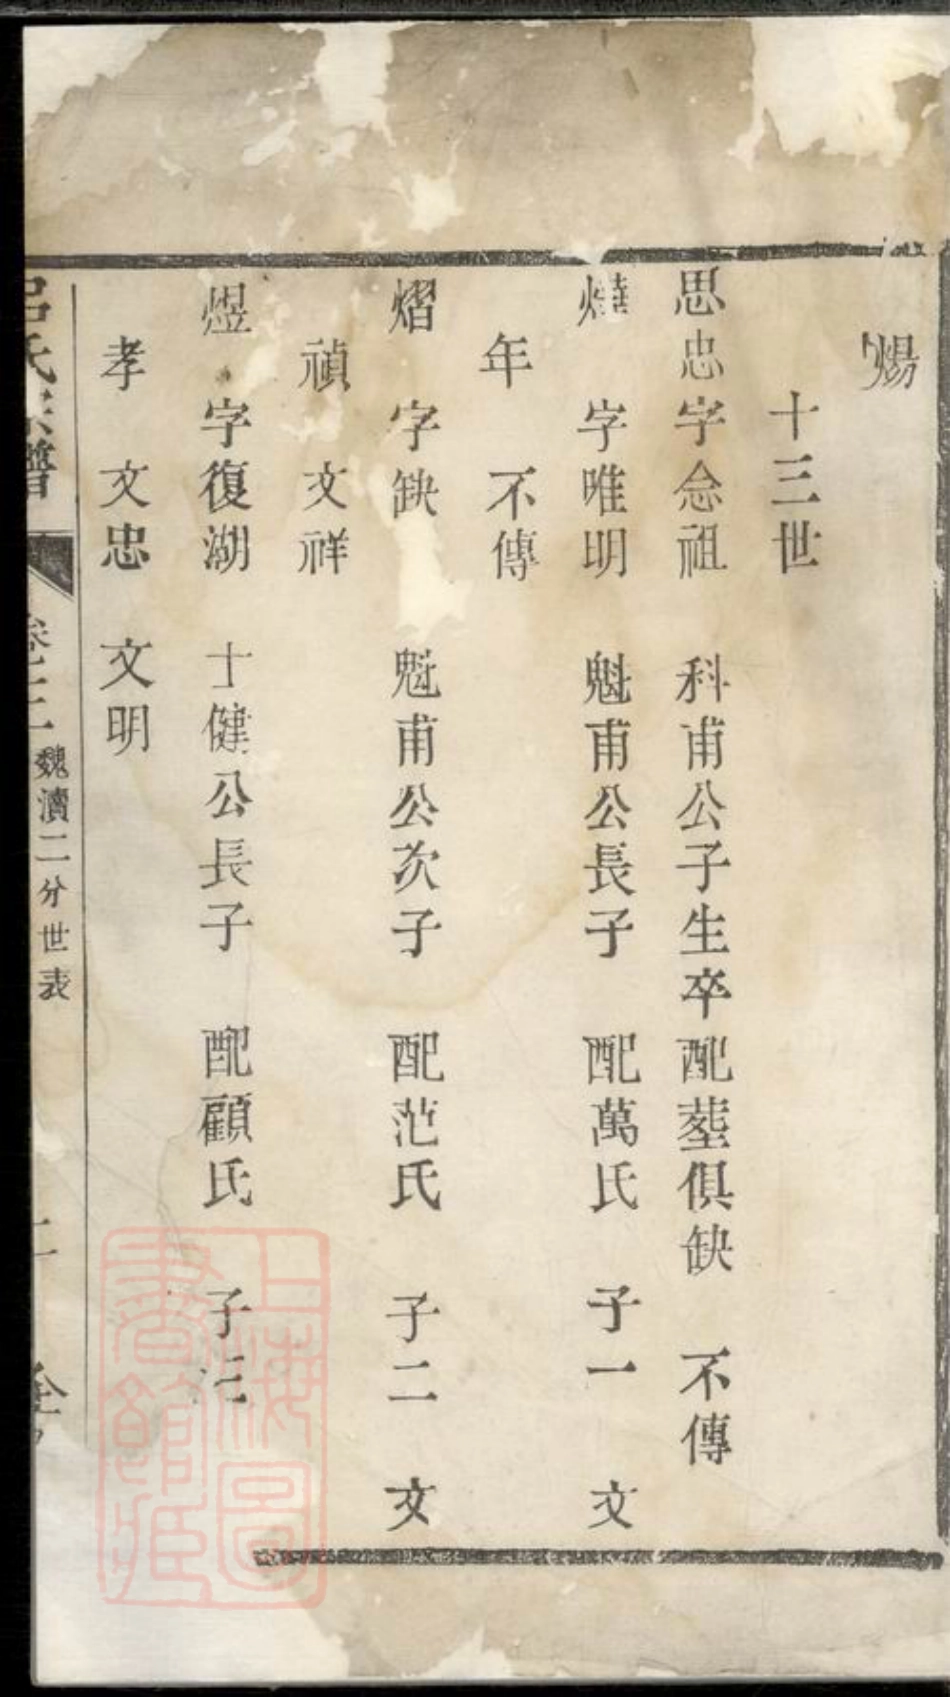 煬
十三世
思忠字念祖 科甫公子生卒配塟俱缺 不傳
字唯明 魁甫公長子 配萬氏 子一 文
年 不傳
熠 字缺 魁甫公次子 配范氏 子二 文
禎 文祥
煜 字復湖 士健公長子 配顧氏 子三
孝 文忠 文明
呂氏宗譜 卷三 魏瀆二分世表
上海圖書館藏